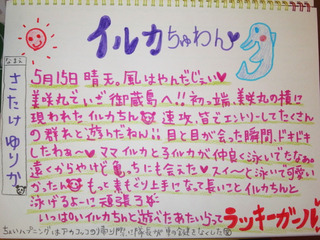 イルカちゃわん♥
なまえ
さたけ ゆりか
5月15日 晴天。風はやんだじぇい♥
美咲丸でいざ御蔵島へ!!初っ端、美咲丸の横に
現われたイルカちん 速攻、皆でエントリーしてたくさん
の群れと遊んだねん!!目と目が会った瞬間、ドキドキ
したわぁ〜♥ママイルカと子イルカが仲良く泳いでたなぁ
遠くからやけど亀っちにも会えた♥スイ〜と泳いで可愛い
かったん もっと素もぐり上手になって長いことイルカちんと
泳げるよーに頑張る
いっぱいイルカちんと遊べたあたいらって ラッキーガール♥
ちょいハプニングは 帰り際に隊長が 車の鍵をなくした